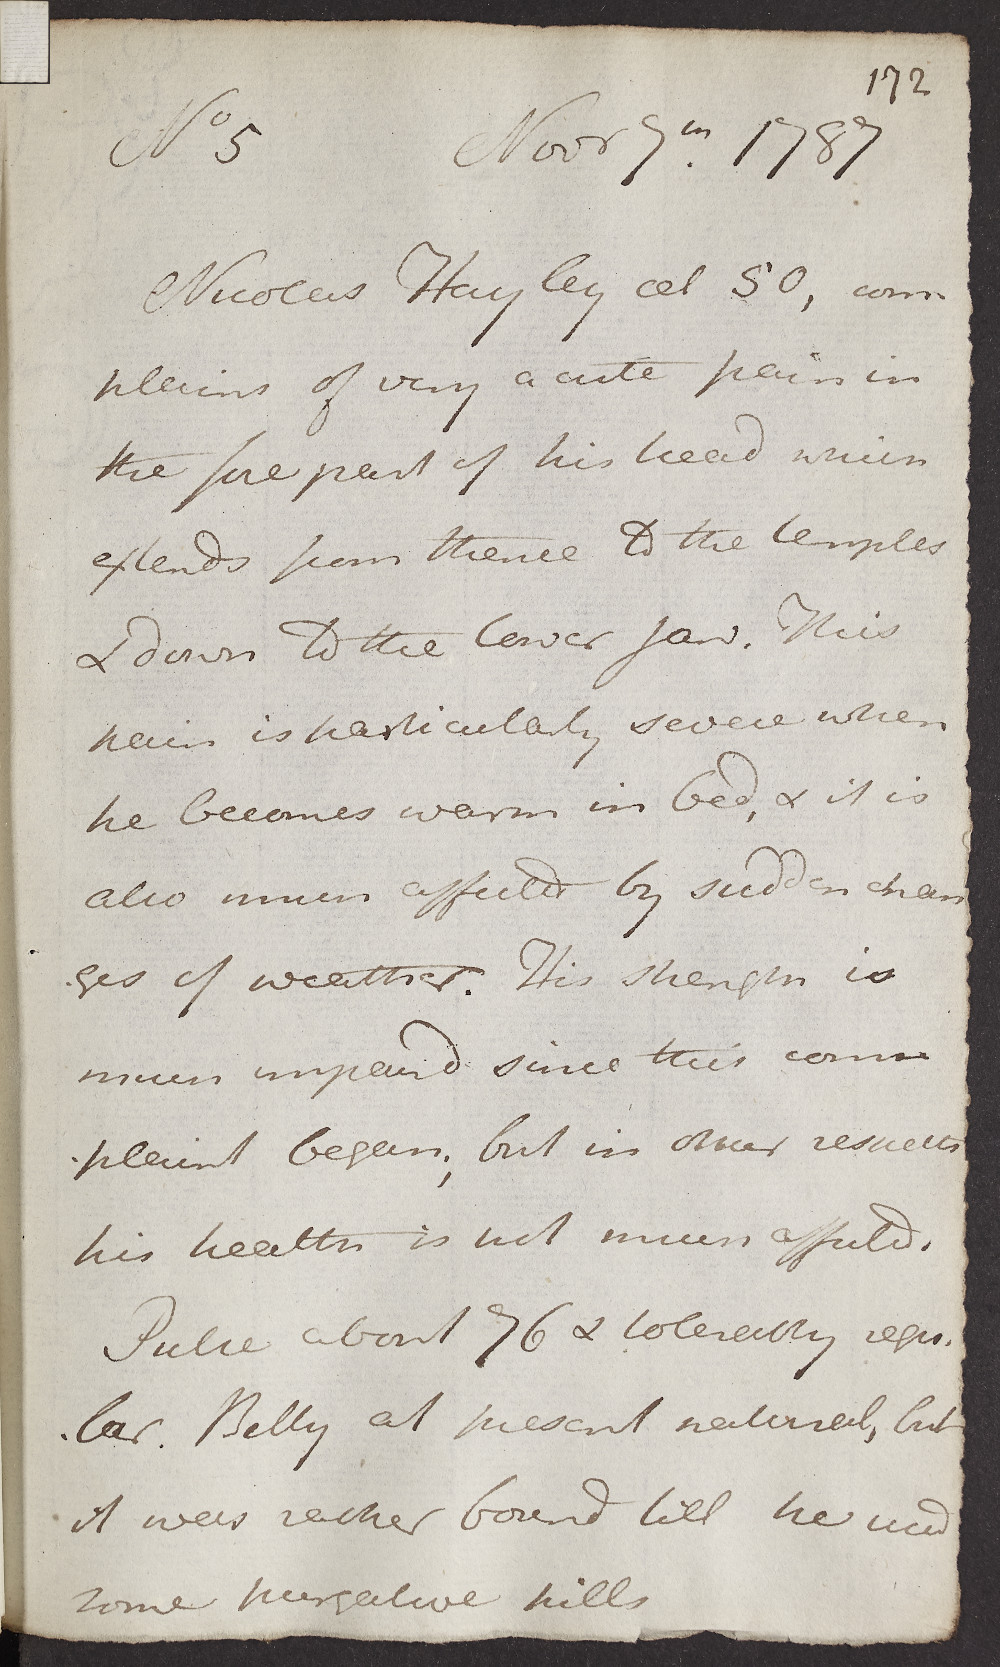 172
No 5 Novr 7th. 1787
Nicolas Hayley aet 50, com
plains of very acute pain in
the forepart of his head which
extends from thence to the temples
& down to the lower jaw. This
pain is particularly severe when
he becomes warm in bed, & it is
also much affected by sudden chan
ges of weather. His strength is
much impaird since this com
plaint began; but in other respects
his health is not much affected.
Pulse about 76 & tolerably regu.
.lar. Belly at present natural, but
it was rather bound till he used
some purgative pills